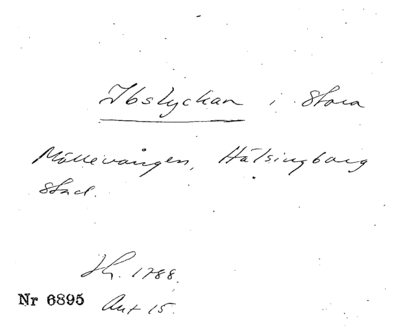 Ibslyckan i Stora
Möllevången, Hälsingborg
stad.
Jh. 1788.
Nr 6895 Akt 15.